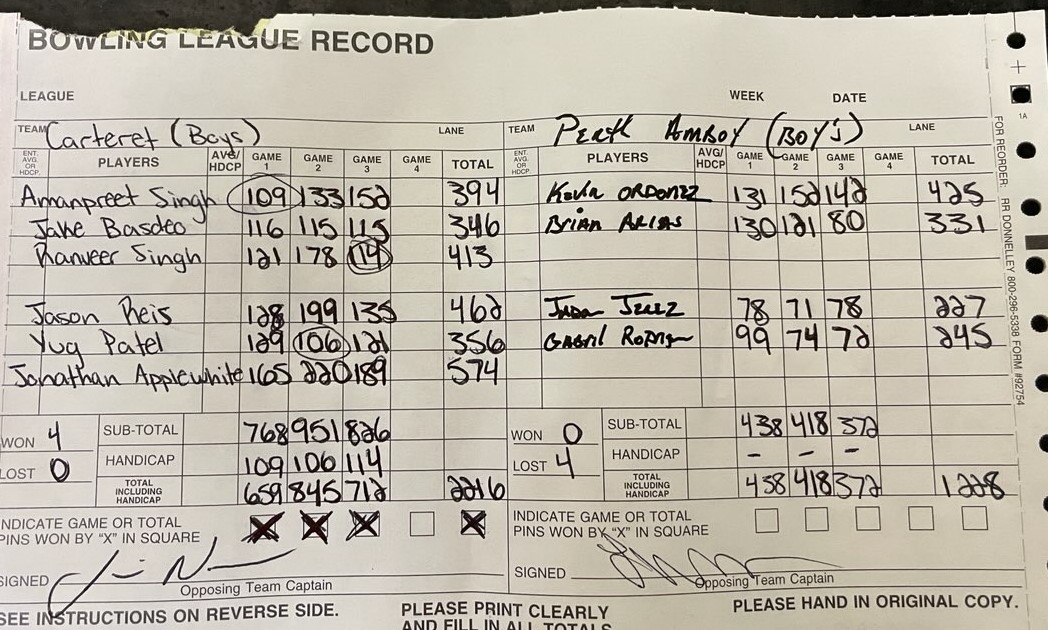 BOWLING LEAGUE RECORD
LEAGUE WEEK DATE
TEAM Carteret (Boys) LANE TEAM Perth AMBOY (BOY'S) LANE
ENT. AVG. OR HDCP. PLAYERS AVG/HDCP GAME 1 GAME 2 GAME 3 GAME 4 TOTAL ENT. AVG. OR HDCP. PLAYERS AVG/HDCP GAME 1 GAME 2 GAME 3 GAME 4 TOTAL
Amanpreet Singh 109 133 152 394 Kevin ORDONEZ 131 152 142 425
Jake Basdeo 116 115 115 346 BRIAN ARIAS 130 121 80 331
Ranveer Singh 121 178 114 413
Jason Reis 128 199 135 462 78 71 78 227
Yug Patel 129 106 121 356 99 74 72 245
Jonathan Applewhite 165 220 189 574
WON 4 SUB-TOTAL 768 951 826 WON 0 SUB-TOTAL 438 418 372
LOST 0 HANDICAP 109 106 114 LOST 4 HANDICAP - - -
TOTAL INCLUDING HANDICAP 659 845 712 2216 TOTAL INCLUDING HANDICAP 438 418 372 1228
INDICATE GAME OR TOTAL PINS WON BY "X" IN SQUARE X X X X INDICATE GAME OR TOTAL PINS WON BY "X" IN SQUARE
SIGNED Opposing Team Captain SIGNED Opposing Team Captain
SEE INSTRUCTIONS ON REVERSE SIDE. PLEASE PRINT CLEARLY AND FILL IN ALL TOTALS PLEASE HAND IN ORIGINAL COPY.
1A
FOR REORDER: RR DONNELLEY 800-296-5338 FORM #92754